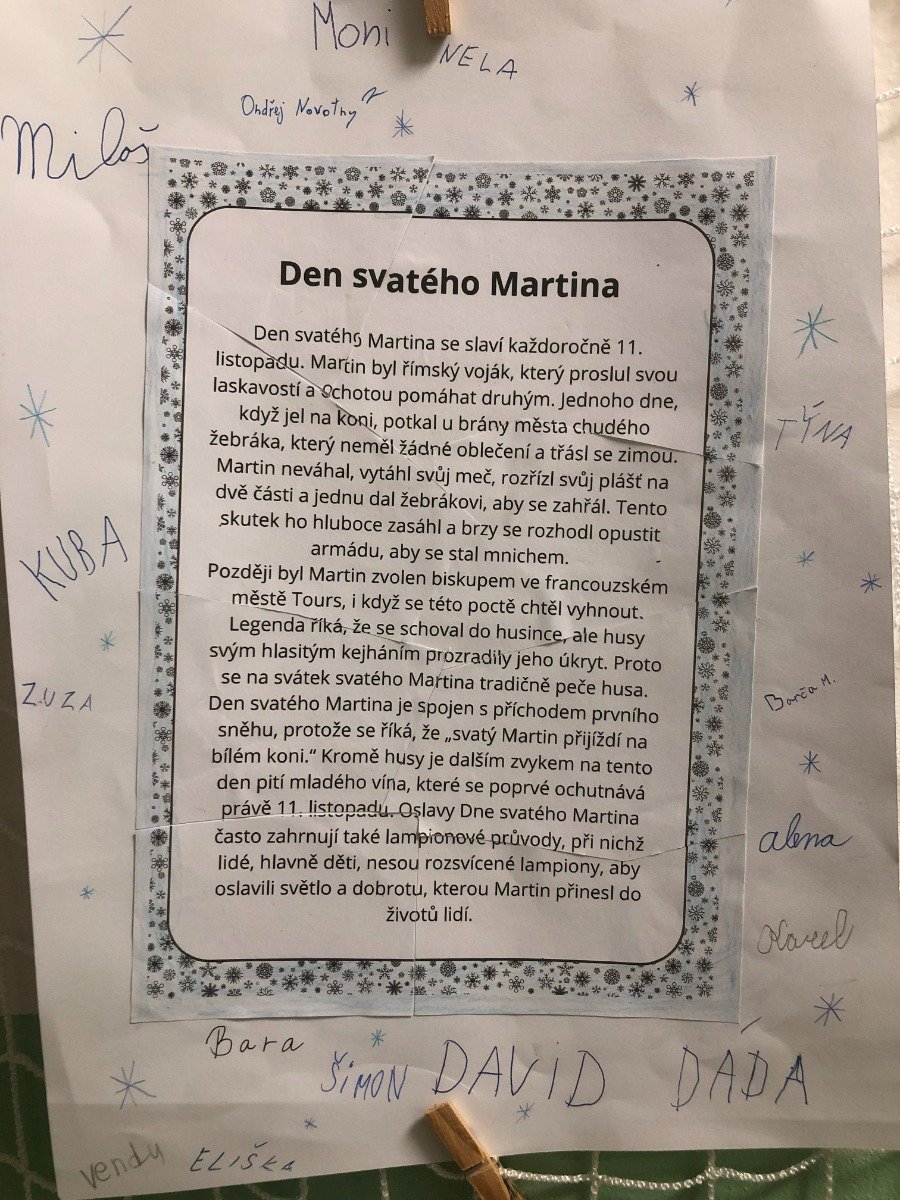 Moni
NELA
Ondřej Novotný
Miloš
Den svatého Martina
Den svatého Martina se slaví každoročně 11.
listopadu. Martin byl římský voják, který proslul svou
laskavostí a ochotou pomáhat druhým. Jednoho dne,
když jel na koni, potkal u brány města chudého
žebráka, který neměl žádné oblečení a třásl se zimou.
Martin neváhal, vytáhl svůj meč, rozřízl svůj plášť na
dvě části a jednu dal žebrákovi, aby se zahřál. Tento
skutek ho hluboce zasáhl a brzy se rozhodl opustit
armádu, aby se stal mnichem.
Později byl Martin zvolen biskupem ve francouzském
městě Tours, i když se této poctě chtěl vyhnout.
Legenda říká, že se schoval do husince, ale husy
svým hlasitým kejháním prozradily jeho úkryt. Proto
se na svátek svatého Martina tradičně peče husa.
Den svatého Martina je spojen s příchodem prvního
sněhu, protože se říká, že „svatý Martin přijíždí na
bílém koni.“ Kromě husy je dalším zvykem na tento
den pití mladého vína, které se poprvé ochutnává
právě 11. listopadu. Oslavy Dne svatého Martina
často zahrnují také lampionové průvody, při nichž
lidé, hlavně děti, nesou rozsvícené lampiony, aby
oslavili světlo a dobrotu, kterou Martin přinesl do
životů lidí.
TÝNA
KUBA
ZUZA
Barča M.
alena
Karel
Bara
ŠIMON
DAVID
DÁĎA
vendy
ELIŠKA